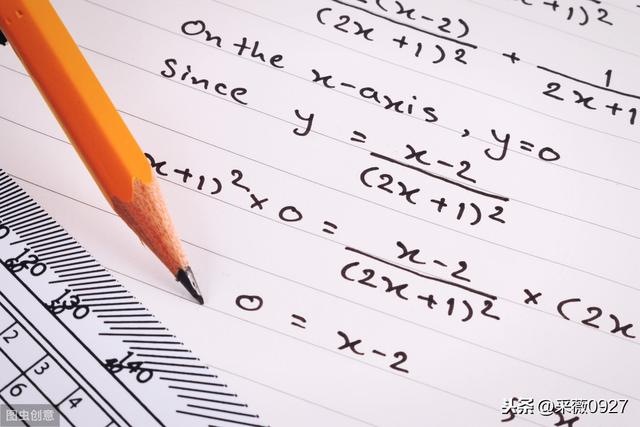 (x-2)
(2x+1)² + 1
2x+1
x+1)²
On the x-axis, y=0
since y = x-2
(2x+1)²
x+1)² × 0 = x-2
(2x+1)² × (2x
0 = x-2
120
130
140
2
3
4
6
图虫创意
头条 @采薇0927